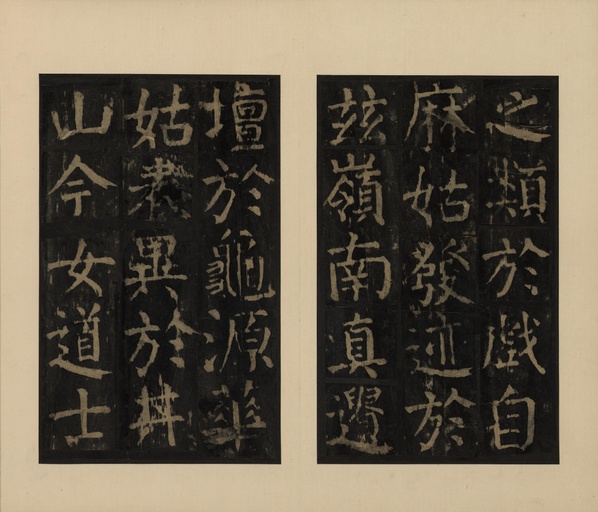 之類於戲自
麻姑發迹於
兹嶺南真遺
壇於龜源華
姑表異於丼
山今女道士